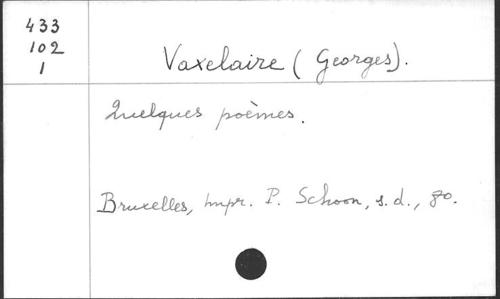 433
102
1
Vaxelaire (Georges).
Quelques poèmes.
Bruxelles, Impr. P. Schoon, s.d., 8o.